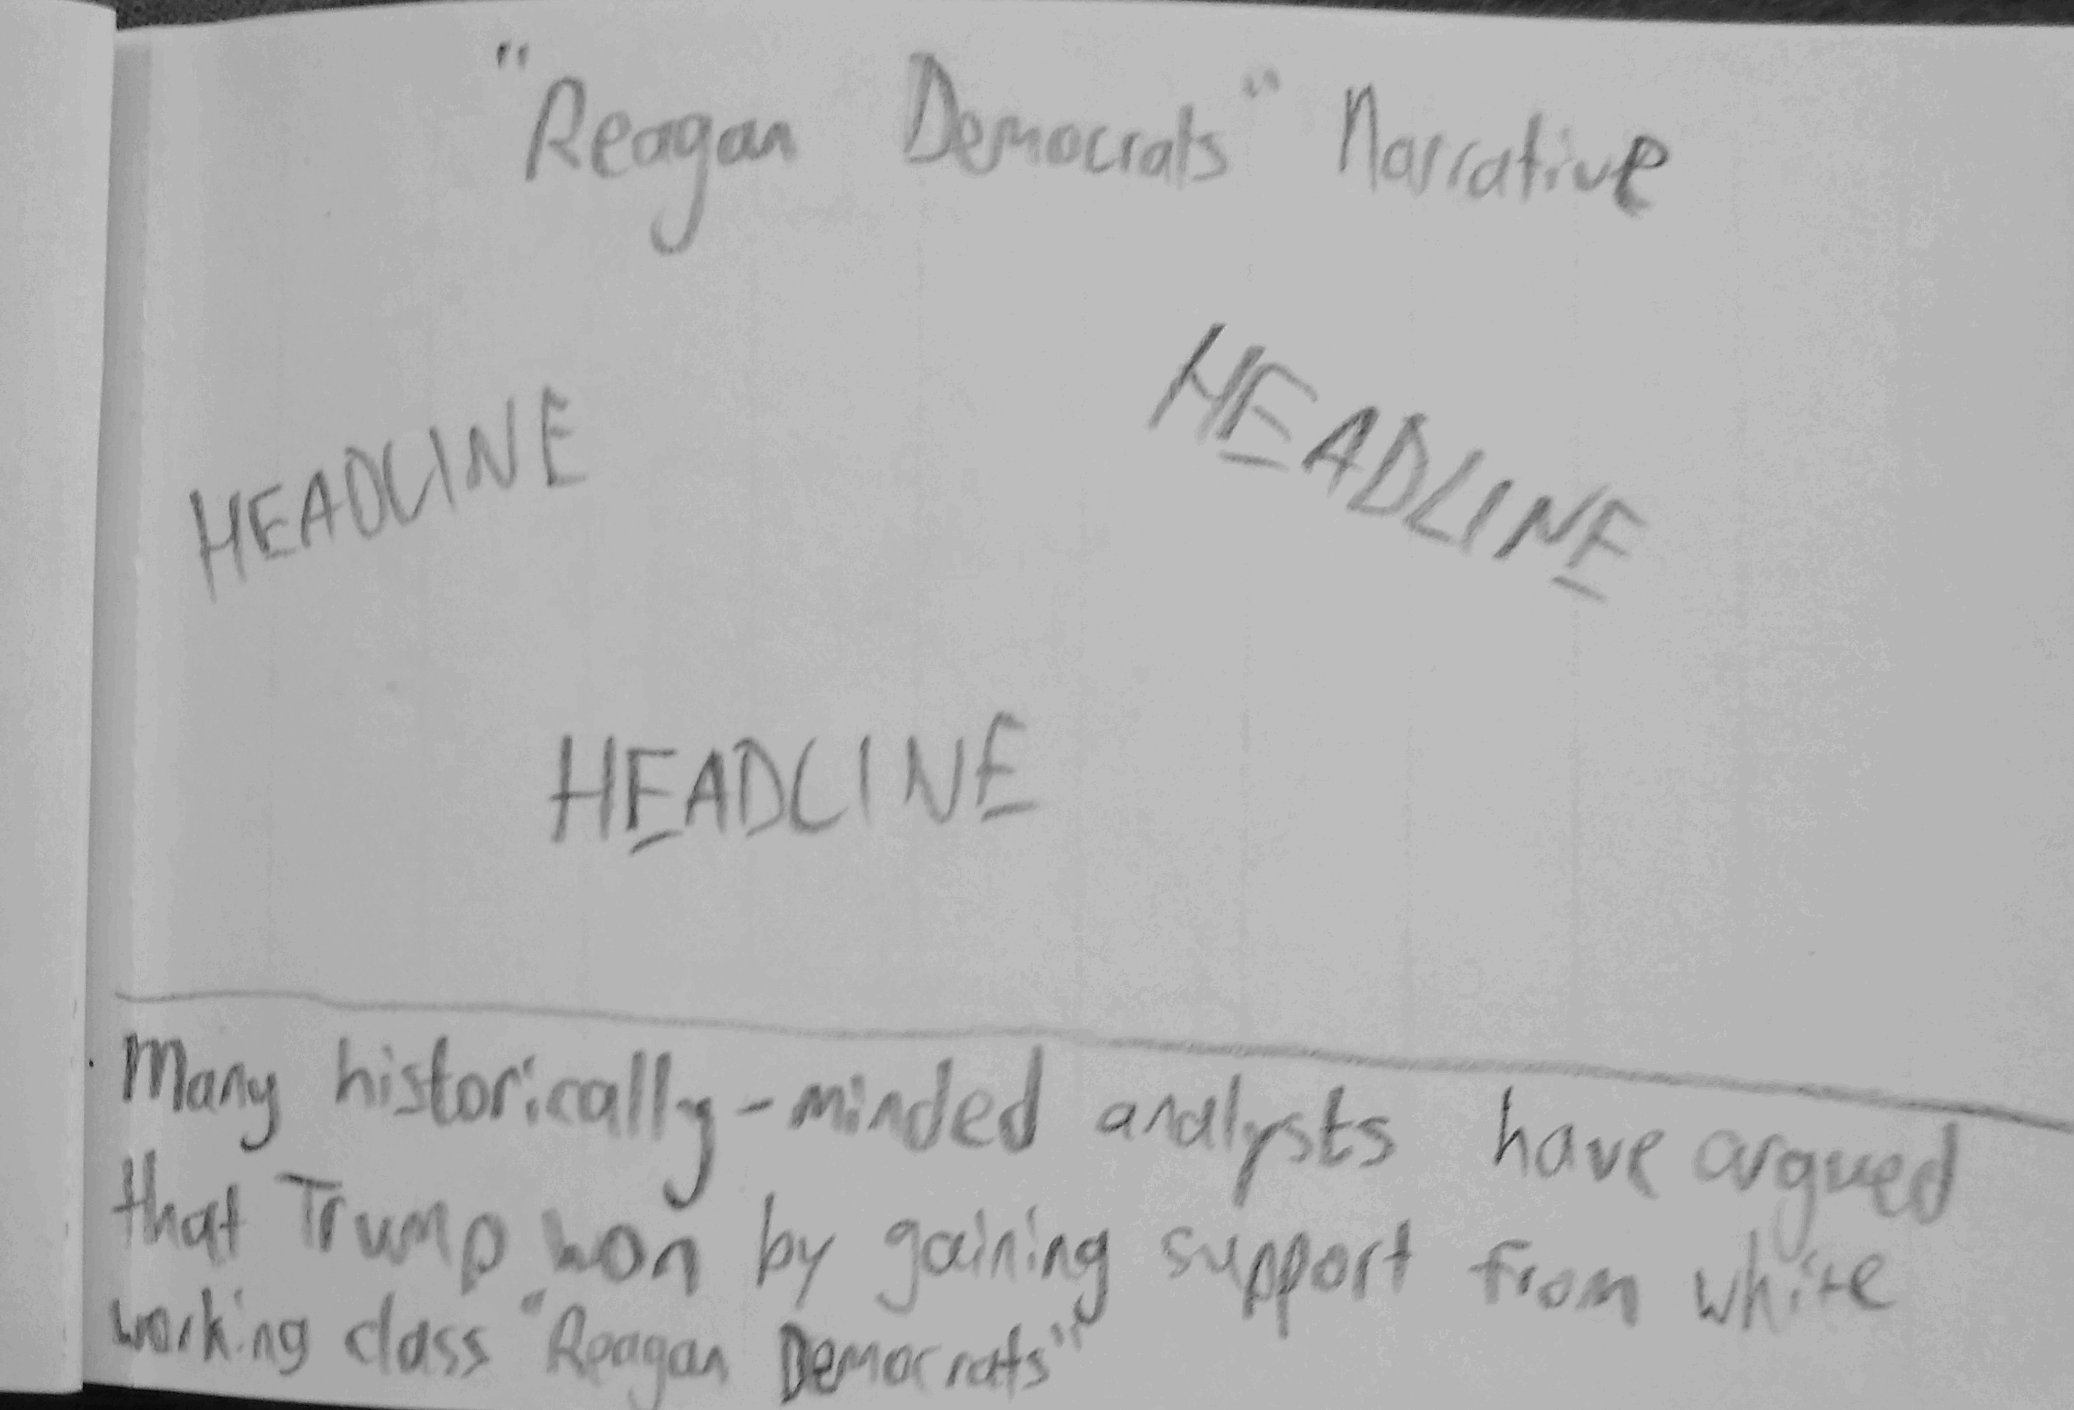 "Reagan Democrats" Narrative
HEADLINE
HEADLINE
HEADLINE
Many historically-minded analysts have argued
that Trump won by gaining support from white
working class "Reagan Democrats"